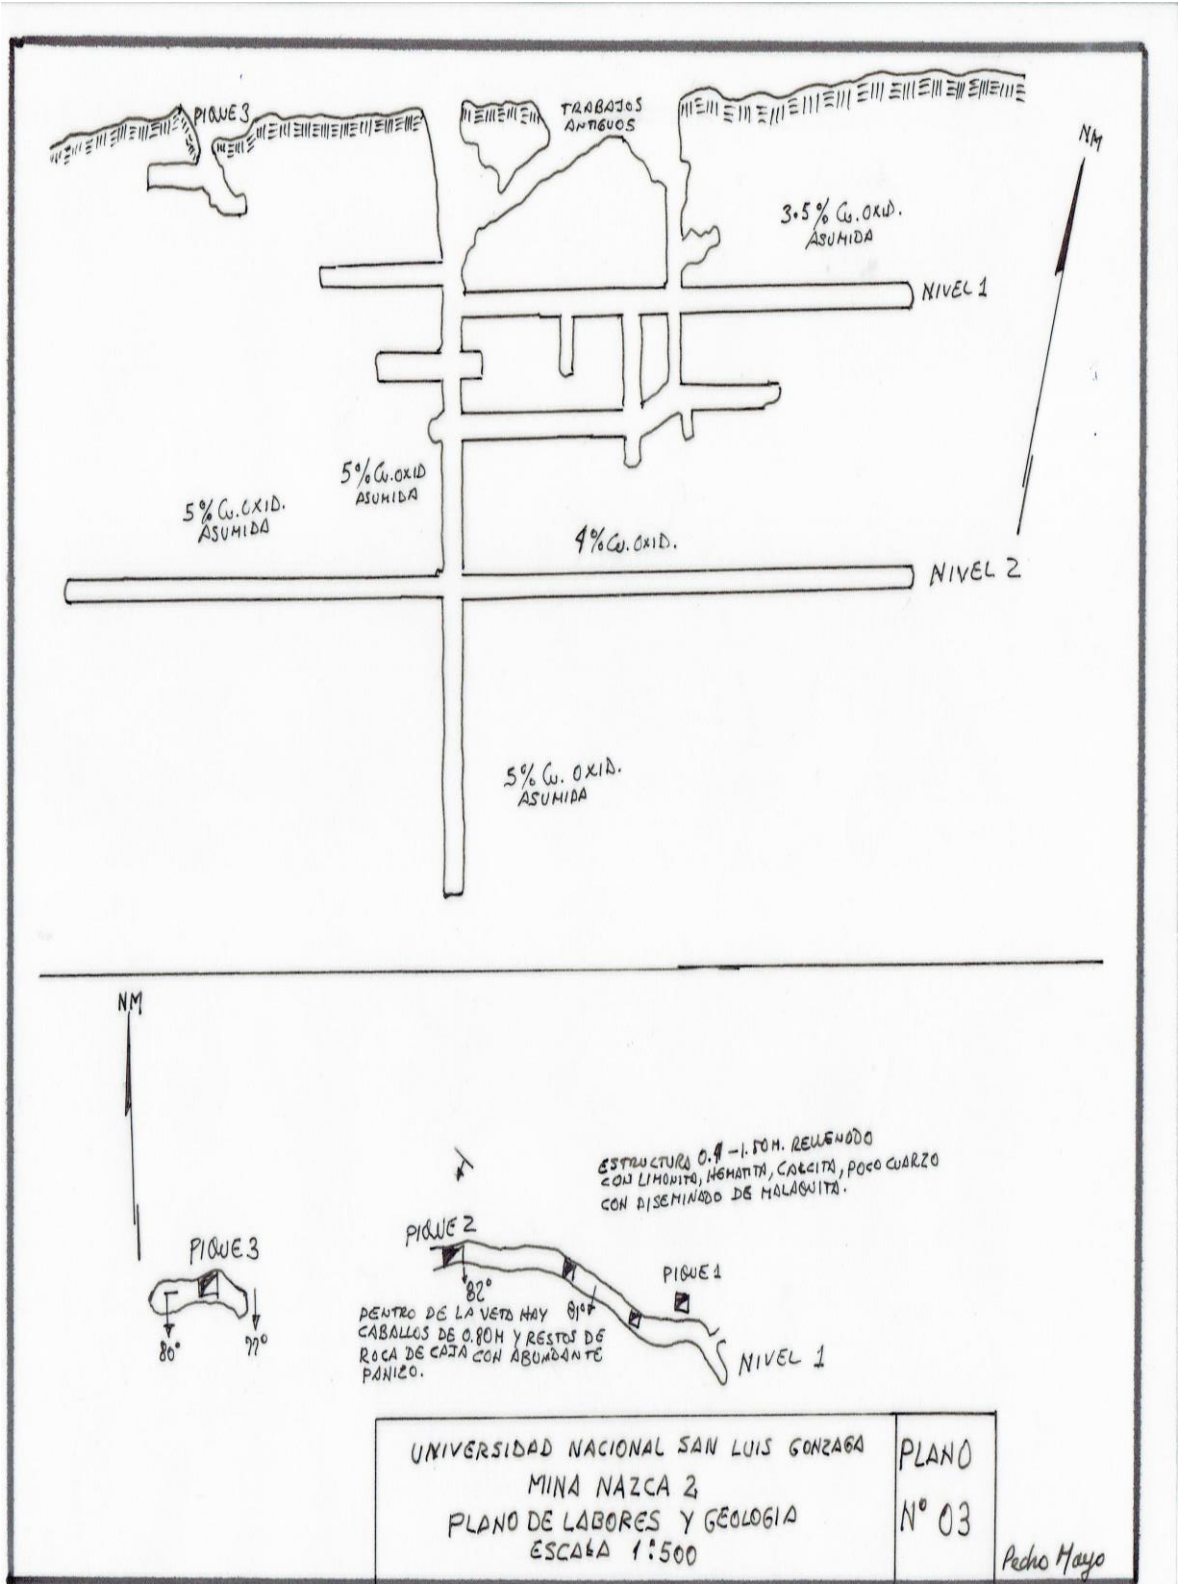 PIQUE 3
TRABAJOS
ANTIGUOS
NM
3.5% Cu. OXID.
ASUMIDA
NIVEL 1
5% Cu. OXID
ASUMIDA
5% Cu. OXID.
ASUMIDA
4% Cu. OXID.
NIVEL 2
5% Cu. OXID.
ASUMIDA
NM
ESTRUCTURA 0.9-1.50M. RELLENADO
CON LIMONITA, HEMATITA, CALCITA, POCO CUARZO
CON DISEMINADO DE MALAQUITA.
PIQUE 2
PIQUE 3
PIQUE 1
82°
81°
80°
77°
DENTRO DE LA VETA HAY
CABALLOS DE 0.80M Y RESTOS DE
ROCA DE CAJA CON ABUNDANTE
PANIZO.
NIVEL 1
UNIVERSIDAD NACIONAL SAN LUIS GONZAGA
MINA NAZCA 2
PLANO DE LABORES Y GEOLOGIA
ESCALA 1:500
PLANO
N° 03
Pedro Mayo